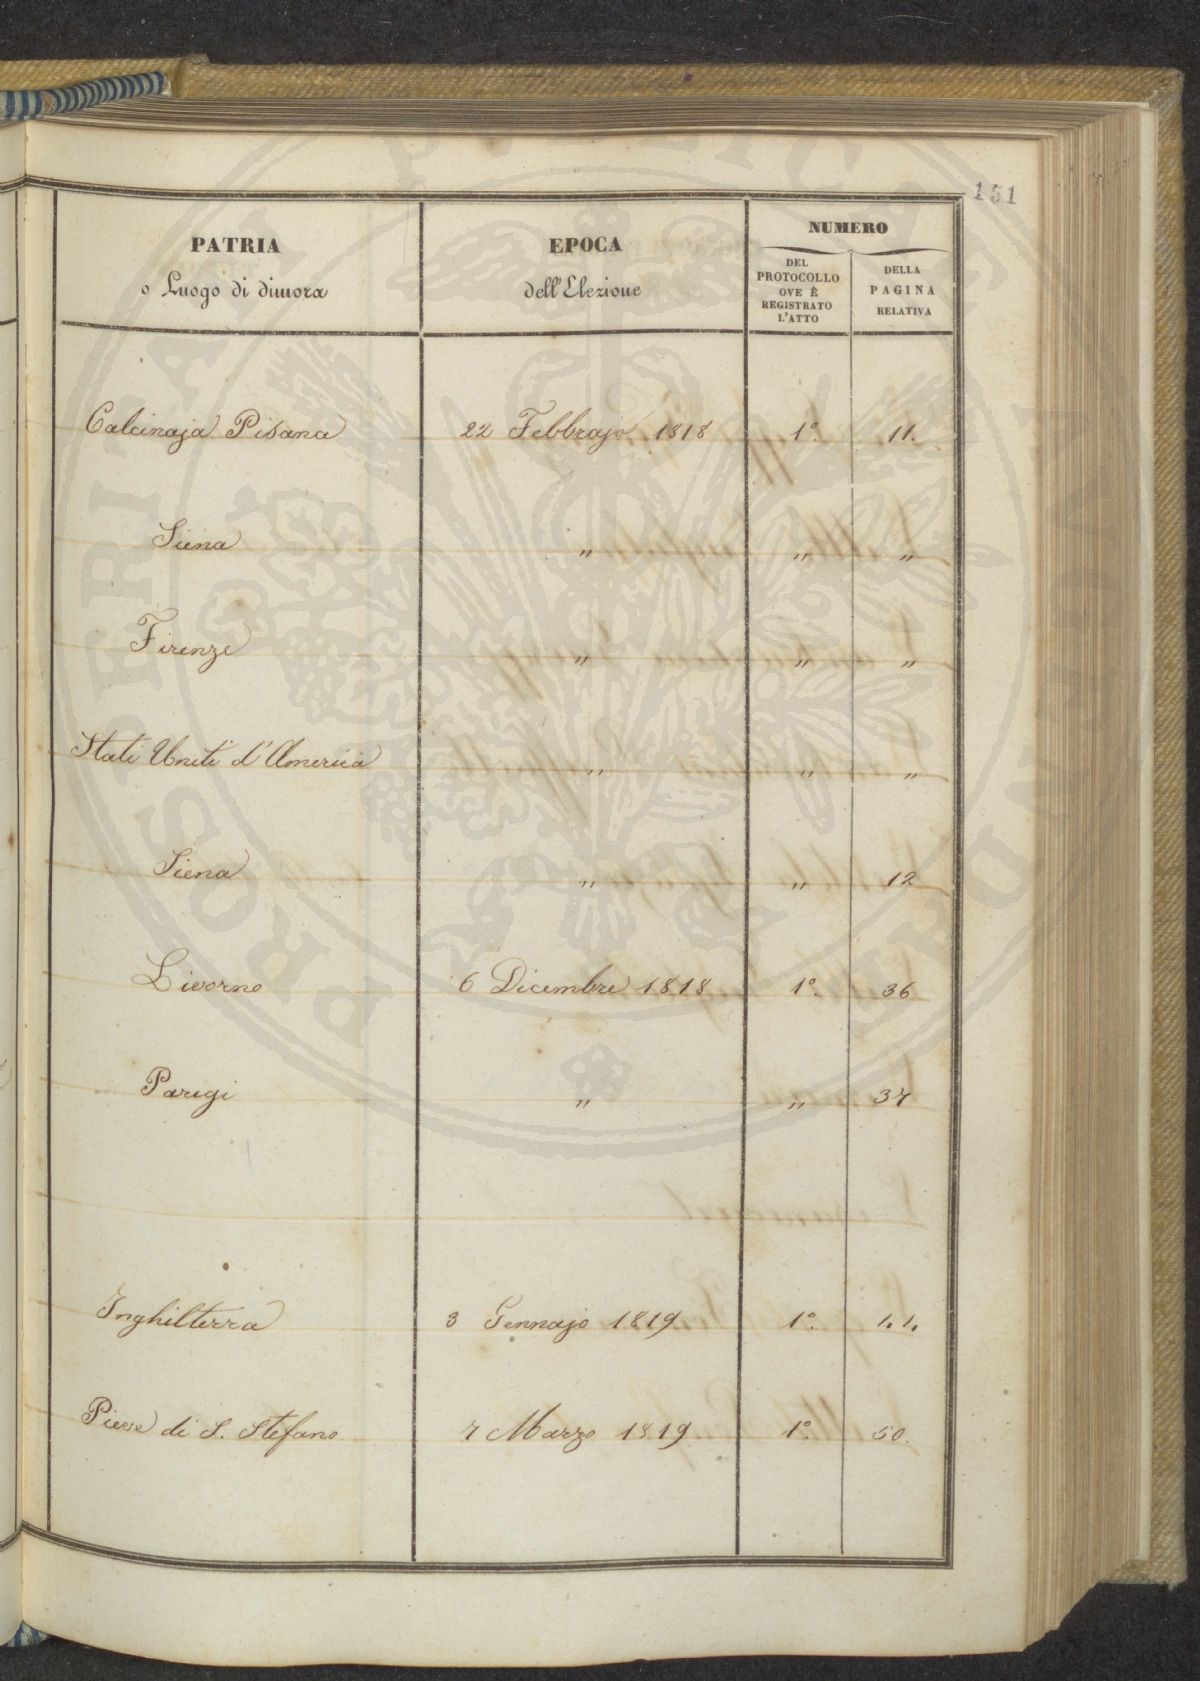 151
PATRIA
o Luogo di dimora
EPOCA
dell'Elezione
NUMERO
DEL
PROTOCOLLO
OVE È
REGISTRATO
L'ATTO
DELLA
PAGINA
RELATIVA
Calcinaja Pisana 22 Febbrajo 1818 1º. 11.
Siena " " "
Firenze " " "
Stati Uniti d'America " " "
Siena " " 12
Livorno 6 Dicembre 1818 1º. 36
Parigi " " 37
Inghilterra 3 Gennajo 1819 1º. 44.
Pieve di S. Stefano 7 Marzo 1819 1º. 50.